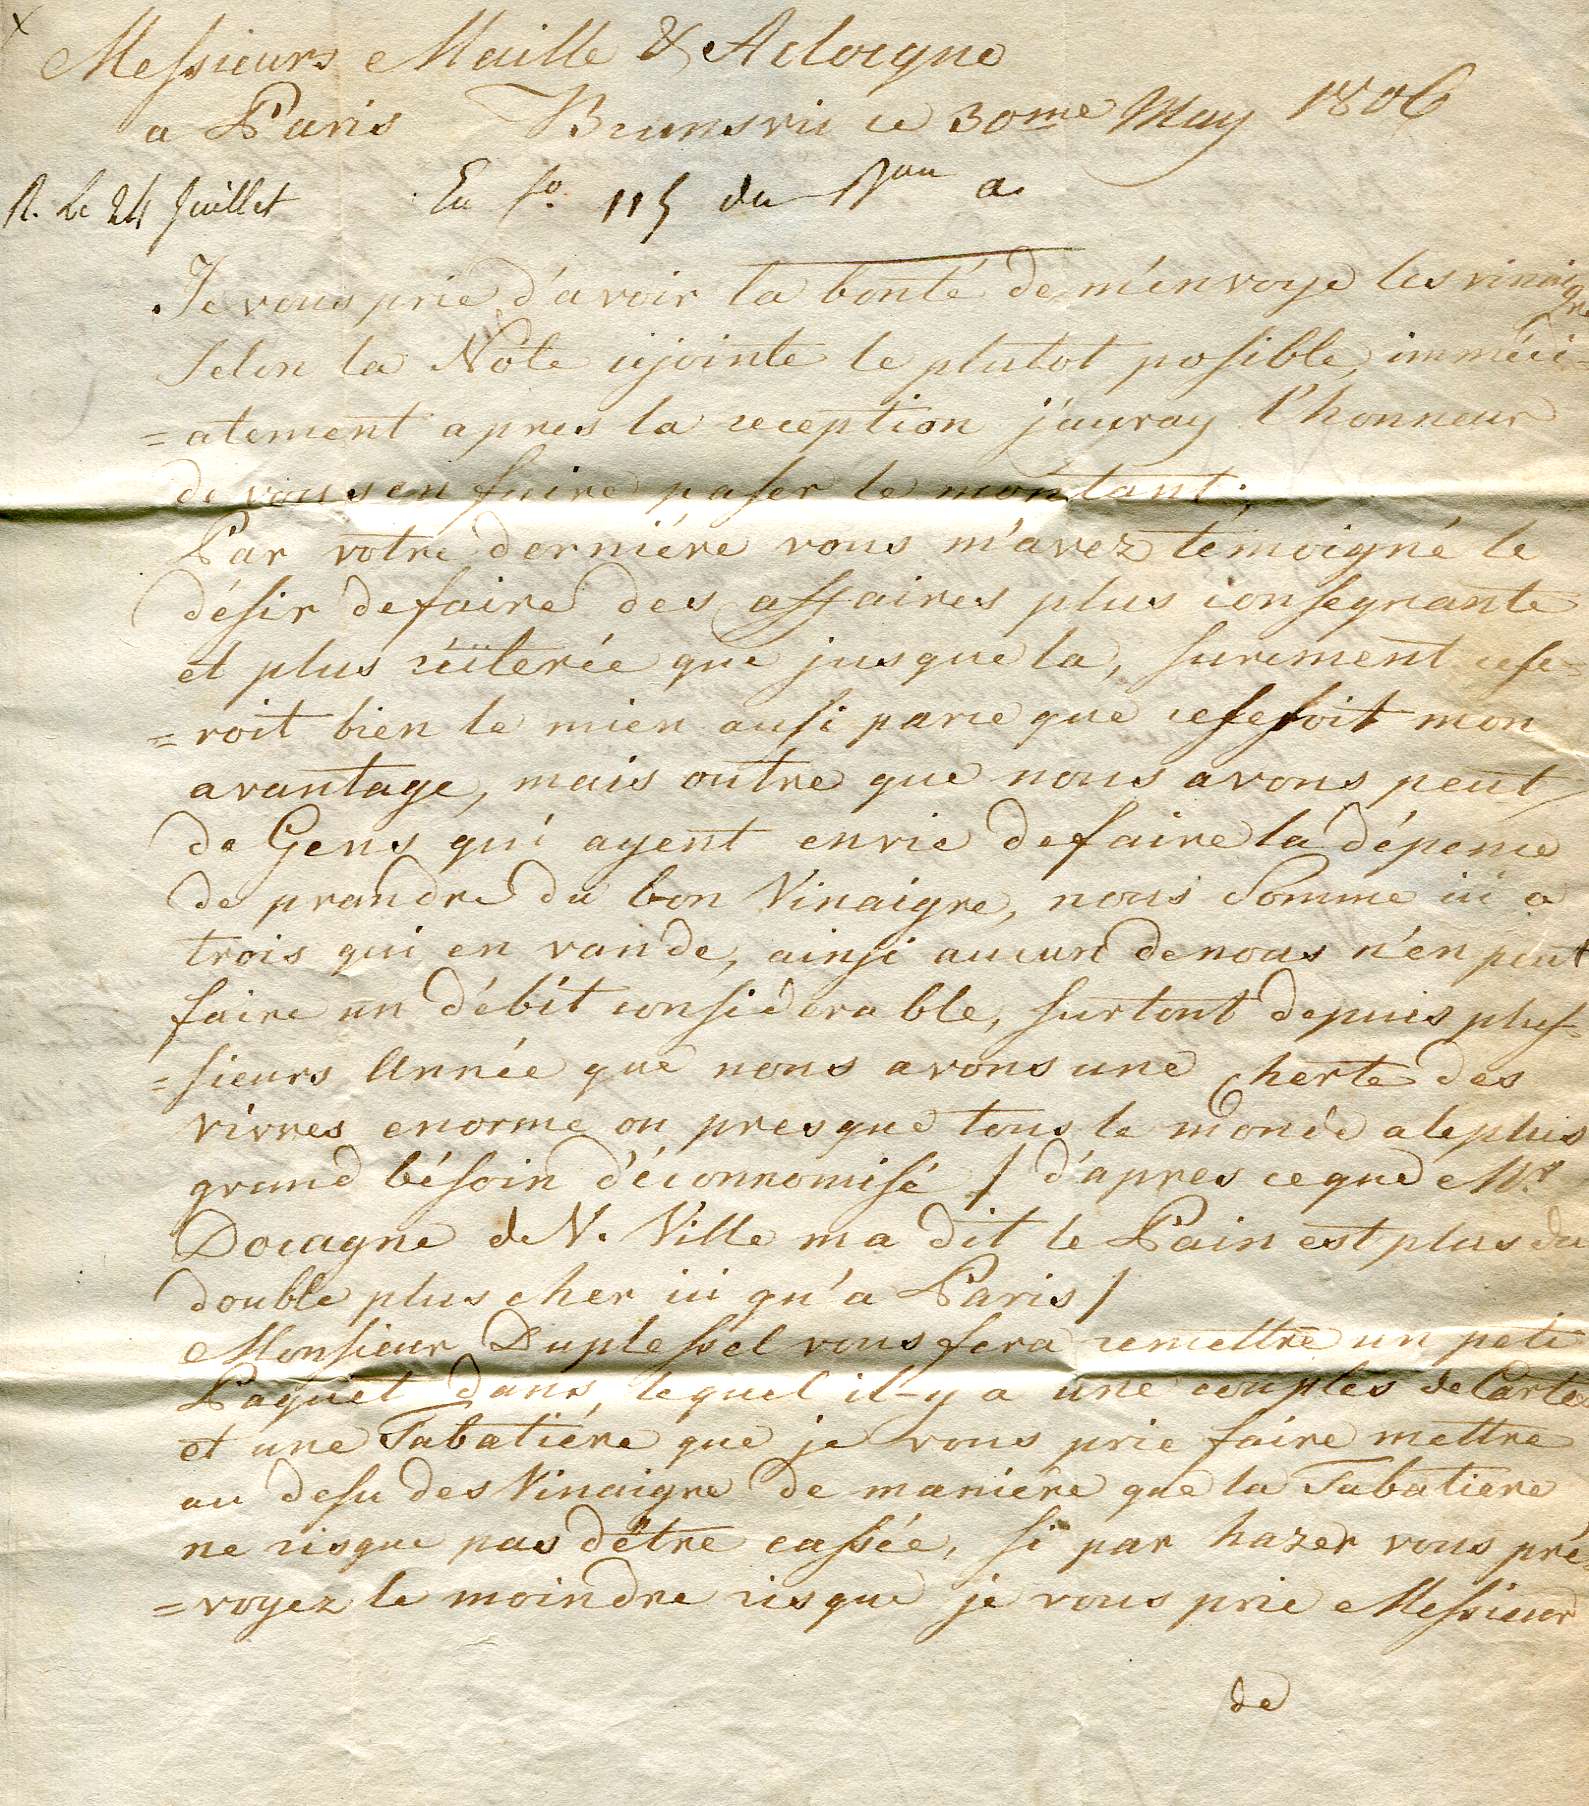 Messieurs Maille & Aclocque
a Paris Brunsvic ce 30me May 1806
R. Le 24 Juillet En fo. 115 du Nau a
Je vous prie d'avoir la bonté de m'envoye les vinaigre
selon la Note cijointe le plutot possible, immédi=
=atement apres la reception j'auray l'honneur
de vous en faire passer le montant.
Par votre derniére vous m'avez témoigné le
désir de faire des affaires plus conseqnante
et plus réiterée que jusque la, surement ce se=
=roit bien le mien aussi parce que ce seroit mon
avantage, mais outre que nous avons peut
de Gens qui ayent envie de faire la dépence
de prandre du bon Vinaigre, nous somme ici a
trois qui en vande, ainsi aucun de nous n'en peut
faire un débit considerable, surtout depuis plus=
=sieurs Année que nous avons une cherte des
vivres enorme ou presque tous le monde a le plus
grand bésoin d'éconnomisé / d'apres ce que Mr
Docagne de N. Ville ma dit le Pain est plus du
double plus cher ici qu'a Paris /
Monsieur Duplessel vous fera remettre un peti
Paquet dans lequel il-y a une couples de Carte
et une Tabatiére que je vous prie faire mettre
au desu des Vinaigre de maniere que la Tabatiere
ne risque pas d'être cassée, si par hazer vous pré=
=voyez le moindre risque je vous prie Messieur
de